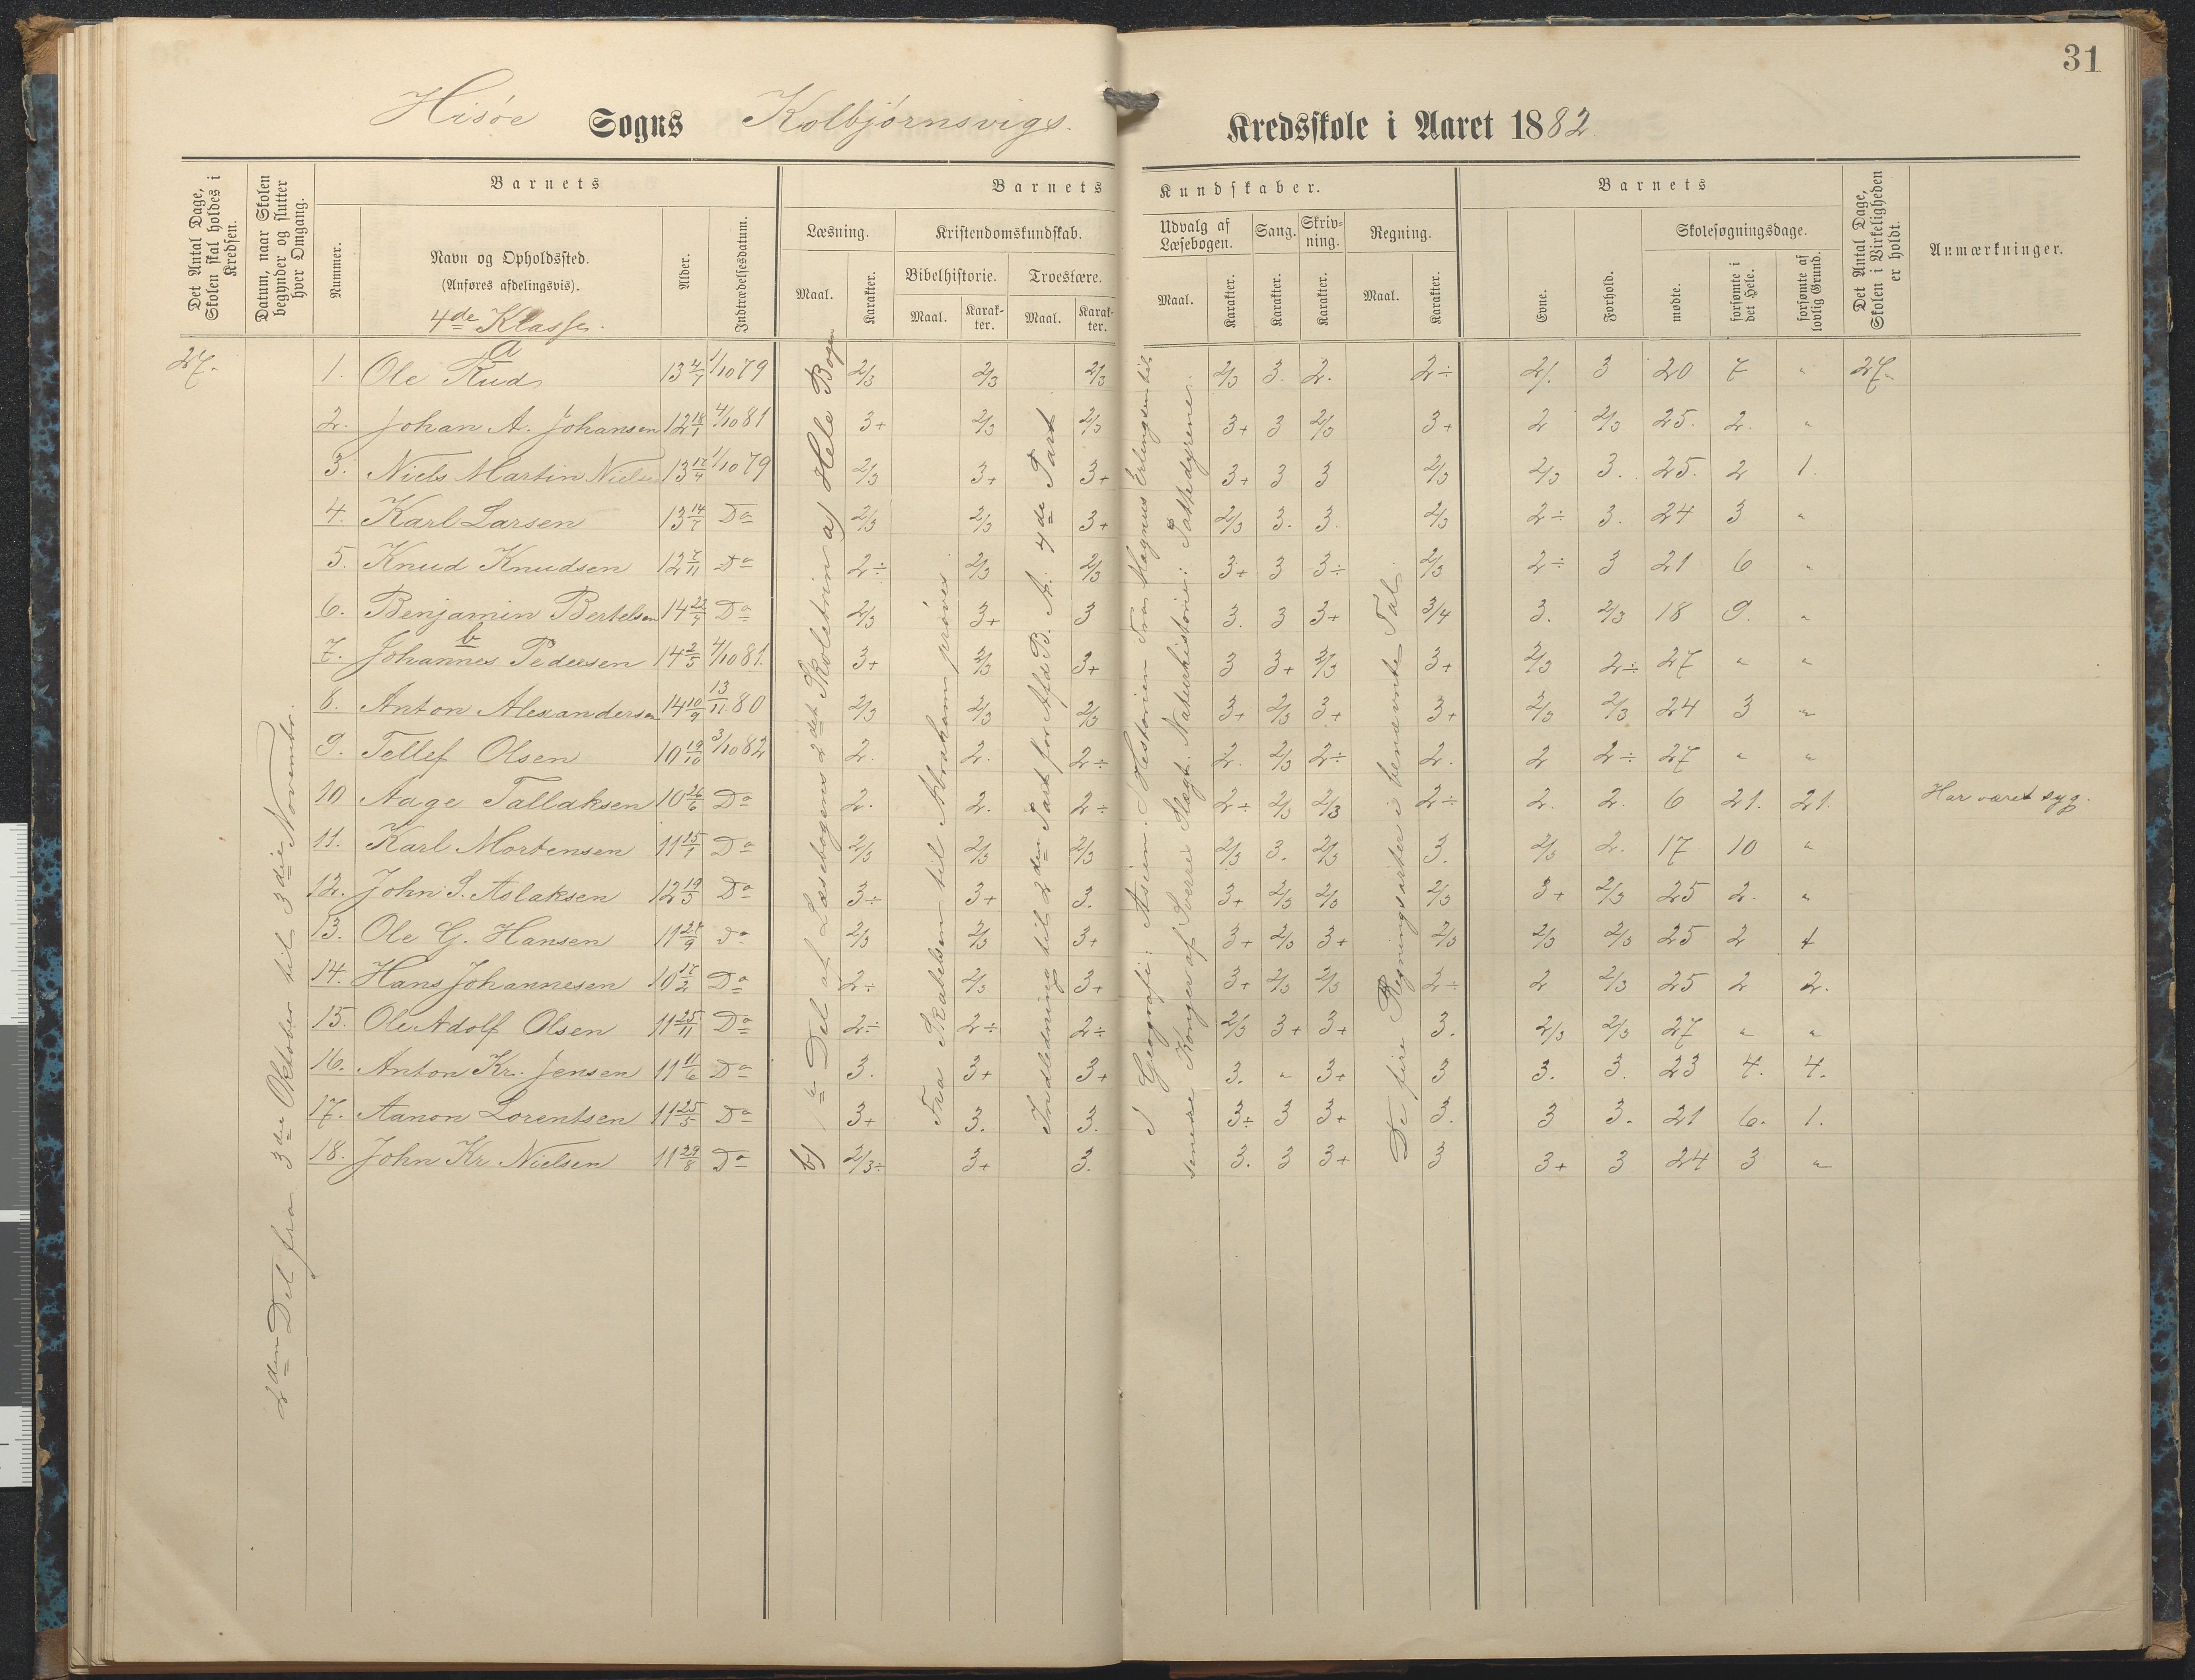 31
Hisøe Sogns Kolbjørnsvigs. Kredsskole i Aaret 1882
Det Antal Dage, Skolen skal holdes i Kredsen.
Datum, naar Skolen begynder og slutter hver Omgang.
Barnets
Nummer.
Navn og Opholdssted.
(Anføres afdelingsvis).
4de Klasse.
Alder.
Indtrædelsesdatum.
Barnets Kundskaber.
Læsning.
Maal.
Karakter.
Kristendomskundskab.
Bibelhistorie.
Maal.
Karakter.
Troeslære.
Maal.
Karakter.
Udvalg af Læsebogen.
Maal.
Karakter.
Sang.
Karakter.
Skrivning.
Karakter.
Regning.
Maal.
Karakter.
Barnets
Evne.
Forhold.
Skolesøgningsdage.
mødte.
forsømte i det Hele.
forsømte af lovlig Grund.
Det Antal Dage, Skolen i Virkeligheden er holdt.
Anmærkninger.
a
27. 1. Ole Rud 13 4/7 1/10 79 2/3 2/3 2/3 2/3 3. 2. 2÷ 2/. 3 20 7 " 27.
2. Johan A. Johansen 12 18/1 4/10 81 3+ 2/3 2/3 3+ 3 2/3 3+ 2 2/3 25. 2. "
3. Niels Martin Nielsen 13 17/4 1/10 79 2/3 3+ 3+ 3+ 3 3 2/3 2/3 3. 25. 2 1.
4. Karl Larsen 13 14/7 Do 2/3 2/3 3+ 2/3 3. 3. 2/3 2÷ 3. 24 3 "
5. Knud Knudsen 12 7/11 Do 2÷ 2/3 2/3 3+ 3 3÷ 2/3 2÷ 3 21 6 "
6. Benjamin Bertelsen 14 22/4 Do 2/3 3+ 3 3. 3 3+ 3/4 3. 2/3 18 9. "
b
7. Johannes Pedersen 14 2/5 4/10 81. 3+ 2/3 3+ 3 3+ 2/3 3+ 2/3 2÷ 27 " "
8. Anton Alexandersen 14 10/9 13/11 80 2/3 2/3 2/3 3+ 2/3 3+ 3+ 2/3 2/3 24 3 "
9. Tellef Olsen 10 19/10 3/10 82 2. 2. 2÷ 2. 2/3 2÷ 2. 2 2÷ 27 " "
10 Aage Tallaksen 10 26/6 Do 2. 2. 2÷ 2÷ 2/3 2/3 2÷ 2. 2. 6 21. 21. Har været syg.
11. Karl Mortensen 11 15/1 Do 2/3 2/3 2/3 2/3 3. 2/3 3. 2/3 2. 17 10 "
12. John S. Aslaksen 12 19/3 Do 3÷ 3+ 3. 3+ 2/3 2/3 2/3 3+ 2/3 25 2. "
13. Ole G. Hansen 11 27/9 Do 2/3 2/3 3+ 3+ 2/3 3+ 2/3 2/3 2/3 25 2 1
14. Hans Johannesen 10 17/2 Do 2÷ 2/3 3+ 3+ 2/3 2/3 2÷ 2 2/3 25 2 2.
15. Ole Adolf Olsen 11 25/11 Do 2÷ 2÷ 2÷ 2/3 3+ 3+ 3. 2/3 2/3 27 " "
16. Anton Kr. Jensen 11 11/6 Do 3. 3+ 3+ 3. " 3+ 3 3. 3. 23 4. 4.
17. Aanon Lorentsen 11 25/5 Do 3+ 3. 3. 3÷ 3 3+ 3. 3 3. 21 6. 1.
18. John Kr Nielsen 11 29/8 Do 2/3÷ 3+ 3. 3. 3 3+ 3 3+ 3 24 3 "
2den Del fra 3die Oktober til 3die Novembr.
b) 1e Del af Læsebogens 2det Skoletrin a) Hele Bogen
Fra Skabelsen til Abraham prøves
Indledning til 2den Part for Afd B. A. 4de Part
I Geografi: Asien. I Historien fra Magnus Erlingsen til
senere Konger af Sverre Slægt. Naturhistorie: Pattedyrene.
De fire Regningsarter i benævnte Tal.